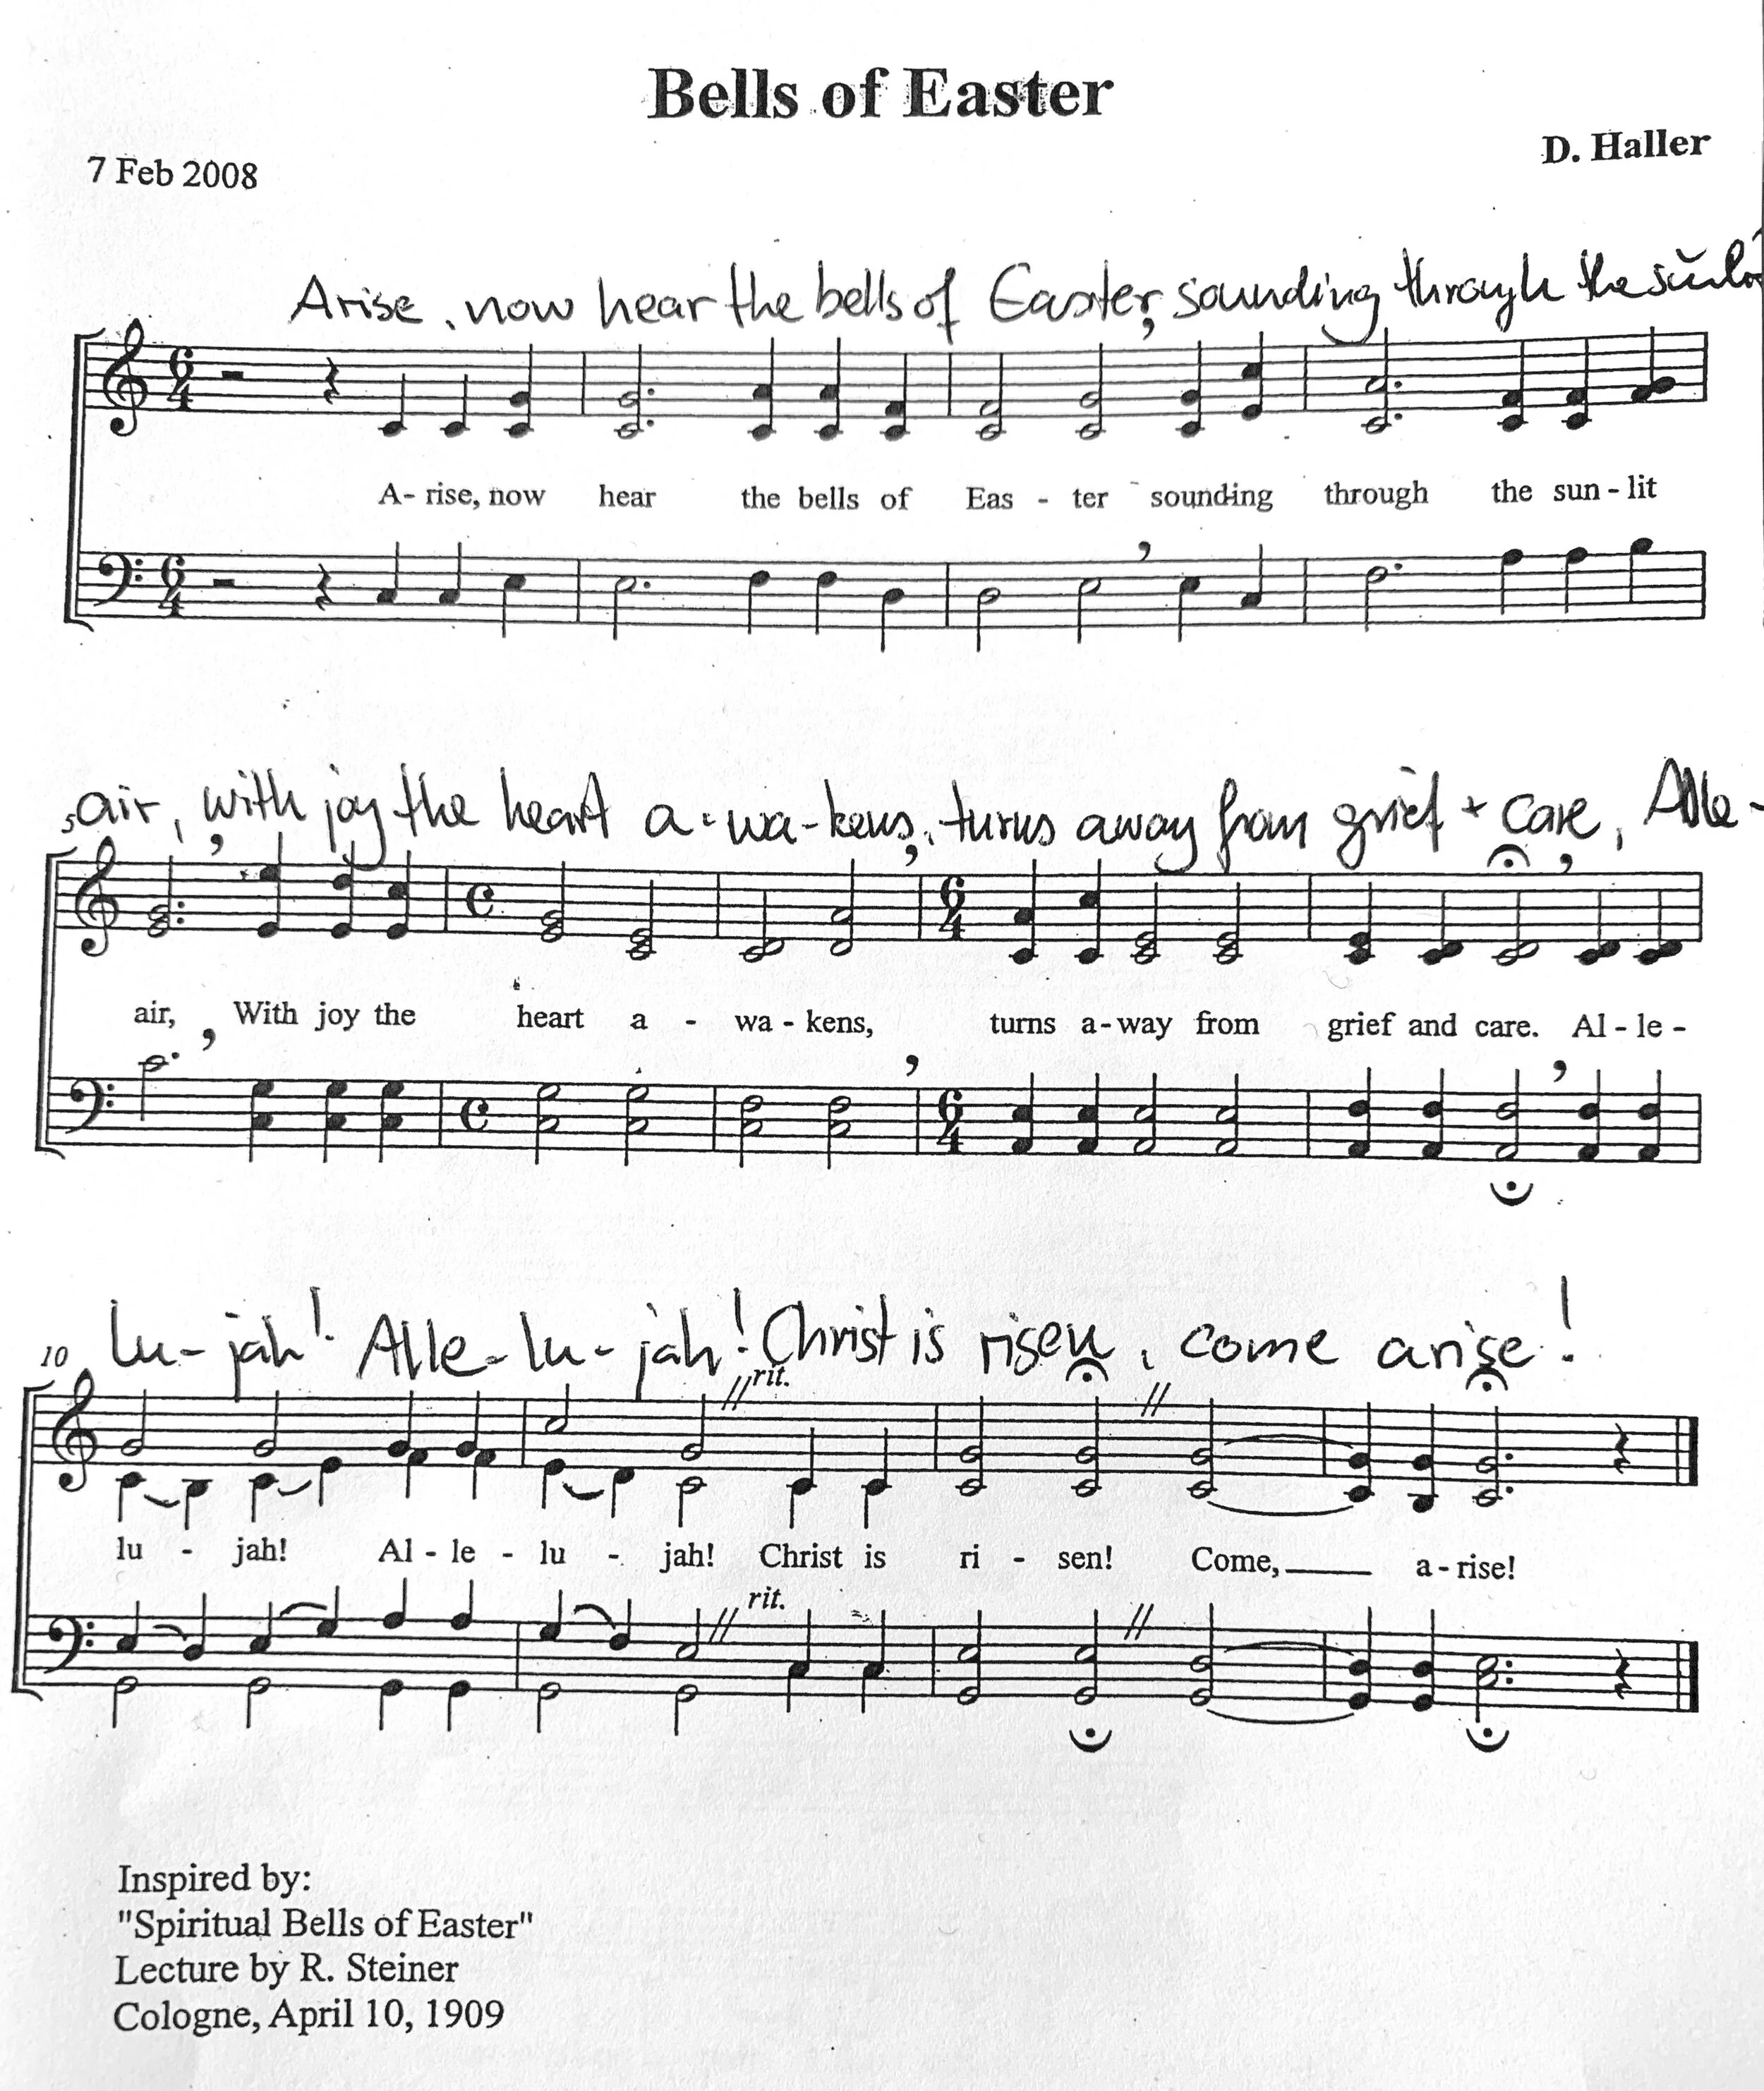 Bells of Easter
7 Feb 2008
D. Haller
Arise, now hear the bells of Easter, sounding through the
6 4
A- rise, now hear the bells of Eas - ter sounding through the sun - lit
6 4
air, with joy the heart a - wa - kens, turns away from grief + care, Alle-
6 4
air, With joy the heart a - wa - kens, turns a - way from grief and care. Al - le -
6 4
lu - jah! Alle - lu - jah! Christ is risen, come arise!
10
rit.
lu - jah! Al - le - lu - jah! Christ is ri - sen! Come, a - rise!
rit.
Inspired by:
"Spiritual Bells of Easter"
Lecture by R. Steiner
Cologne, April 10, 1909